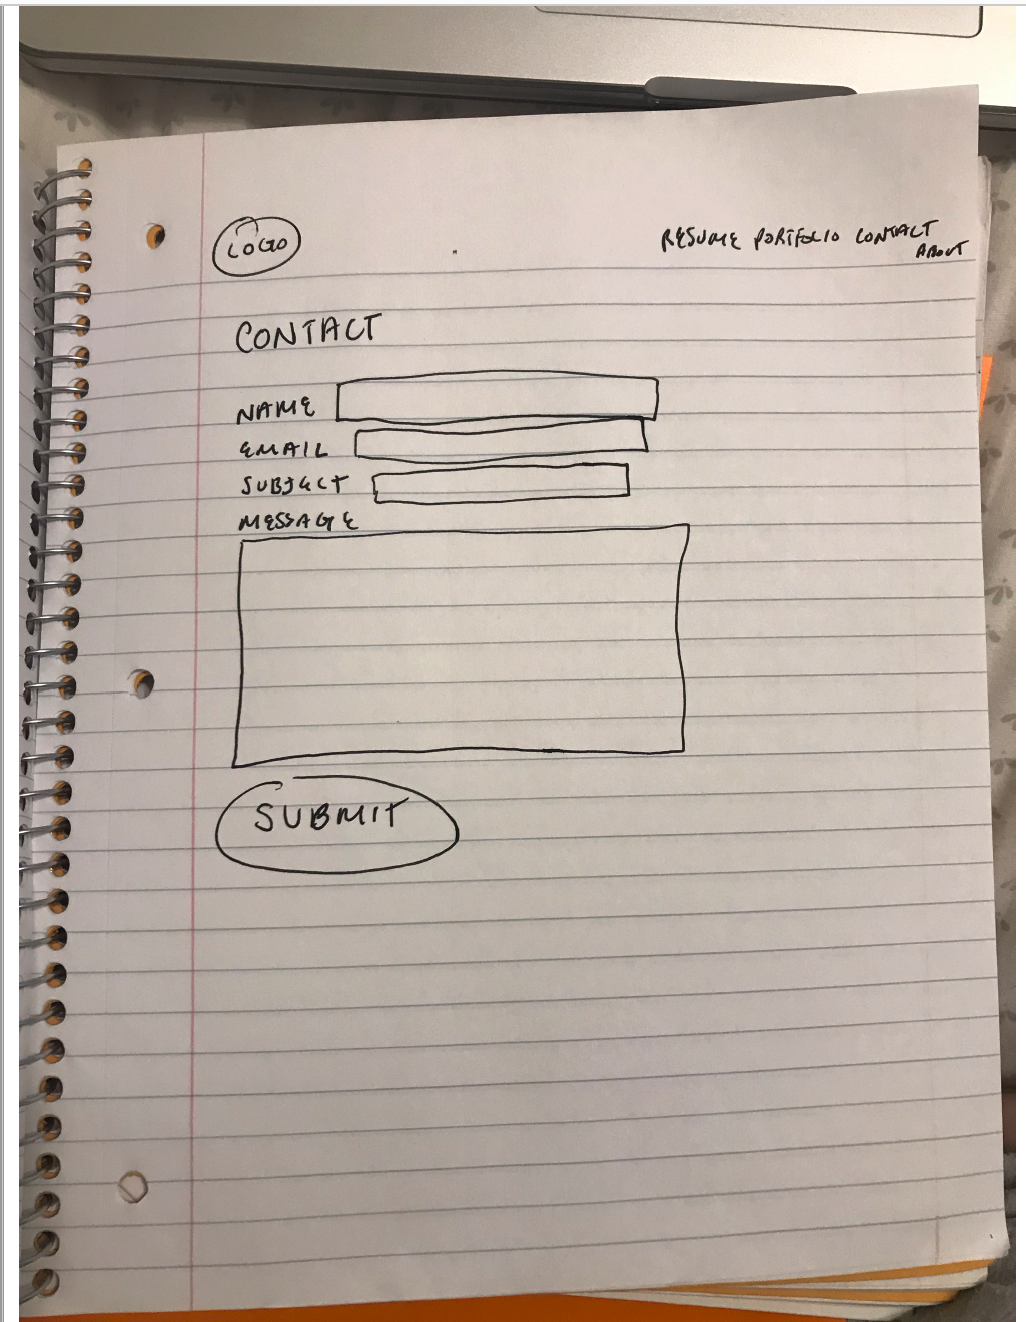 LOGO
RESUME PORTFOLIO CONTACT
ABOUT
CONTACT
NAME
EMAIL
SUBJECT
MESSAGE
SUBMIT